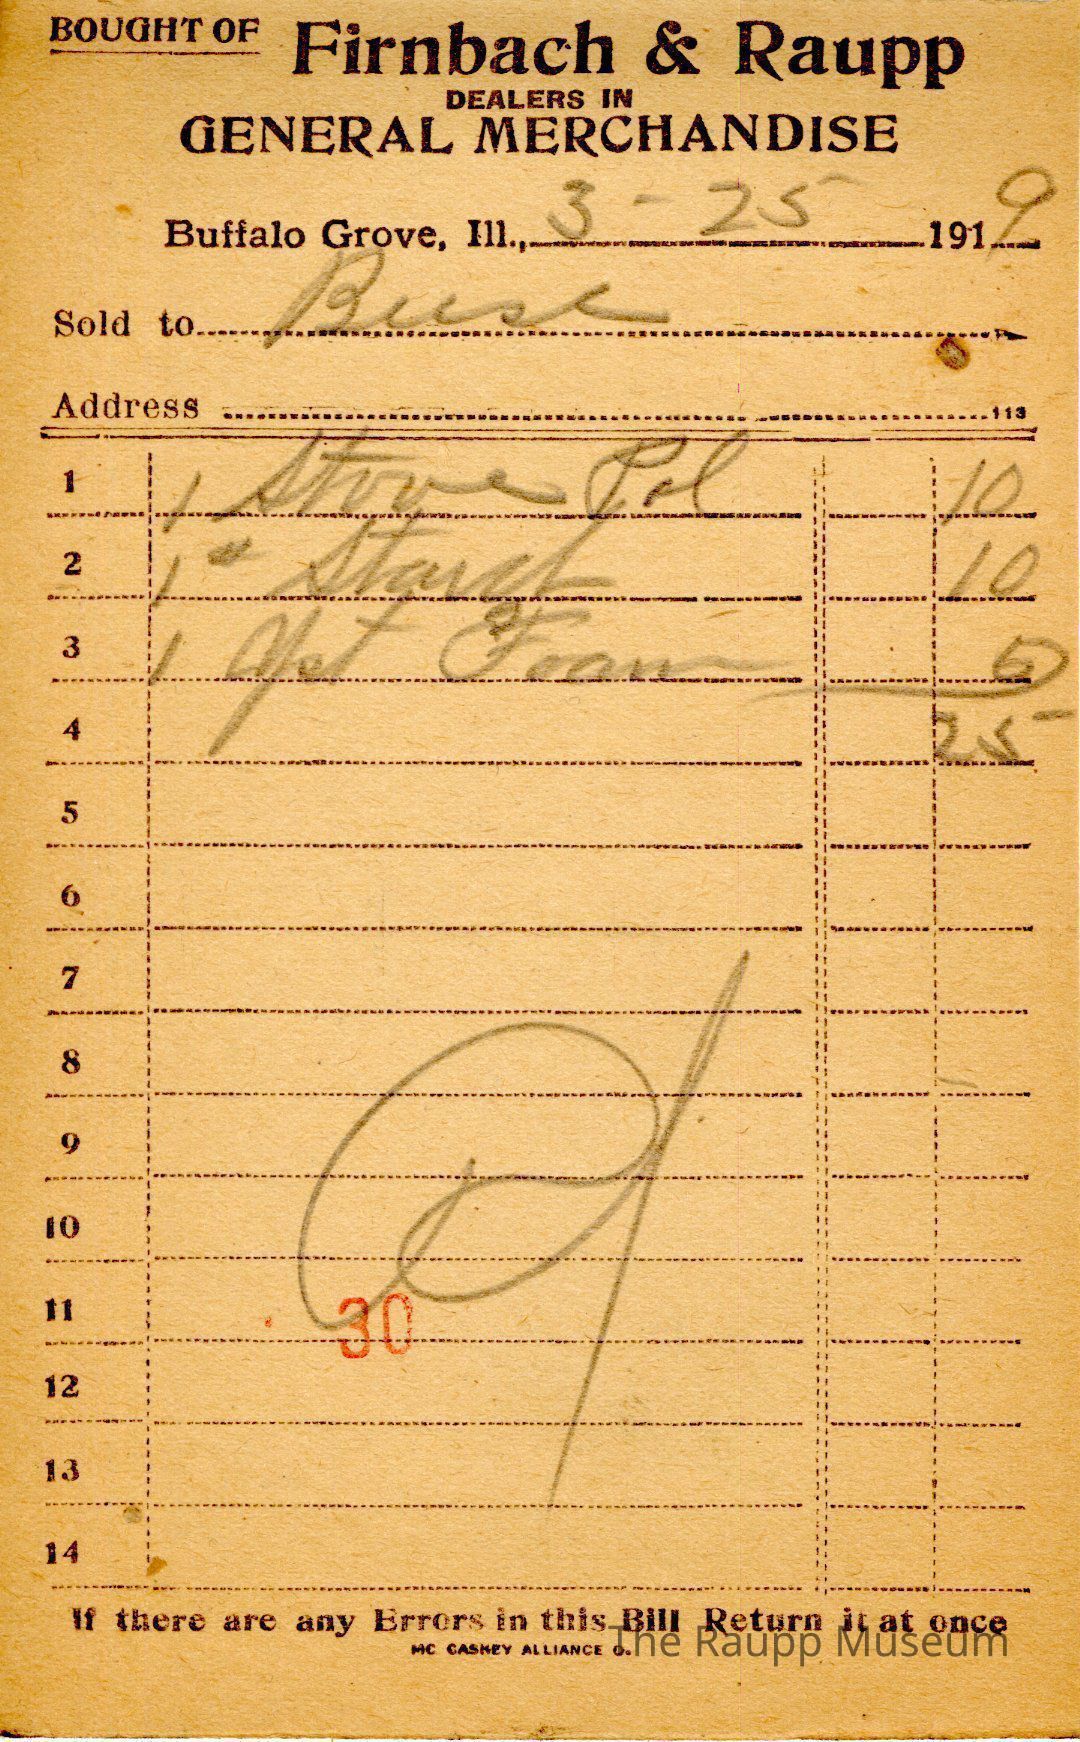 BOUGHT OF Firnbach & Raupp
DEALERS IN
GENERAL MERCHANDISE
Buffalo Grove, Ill., 3 - 25 1919
Sold to Buse
Address 113
1 1 Stove Pol 10
2 1 " Starch 10
3 1 Yst Foam 5
4 25
5
6
7
8
9
10
11 30
12
13
14
If there are any Errors in this Bill Return it at once
MC CASKEY ALLIANCE O.
The Raupp Museum